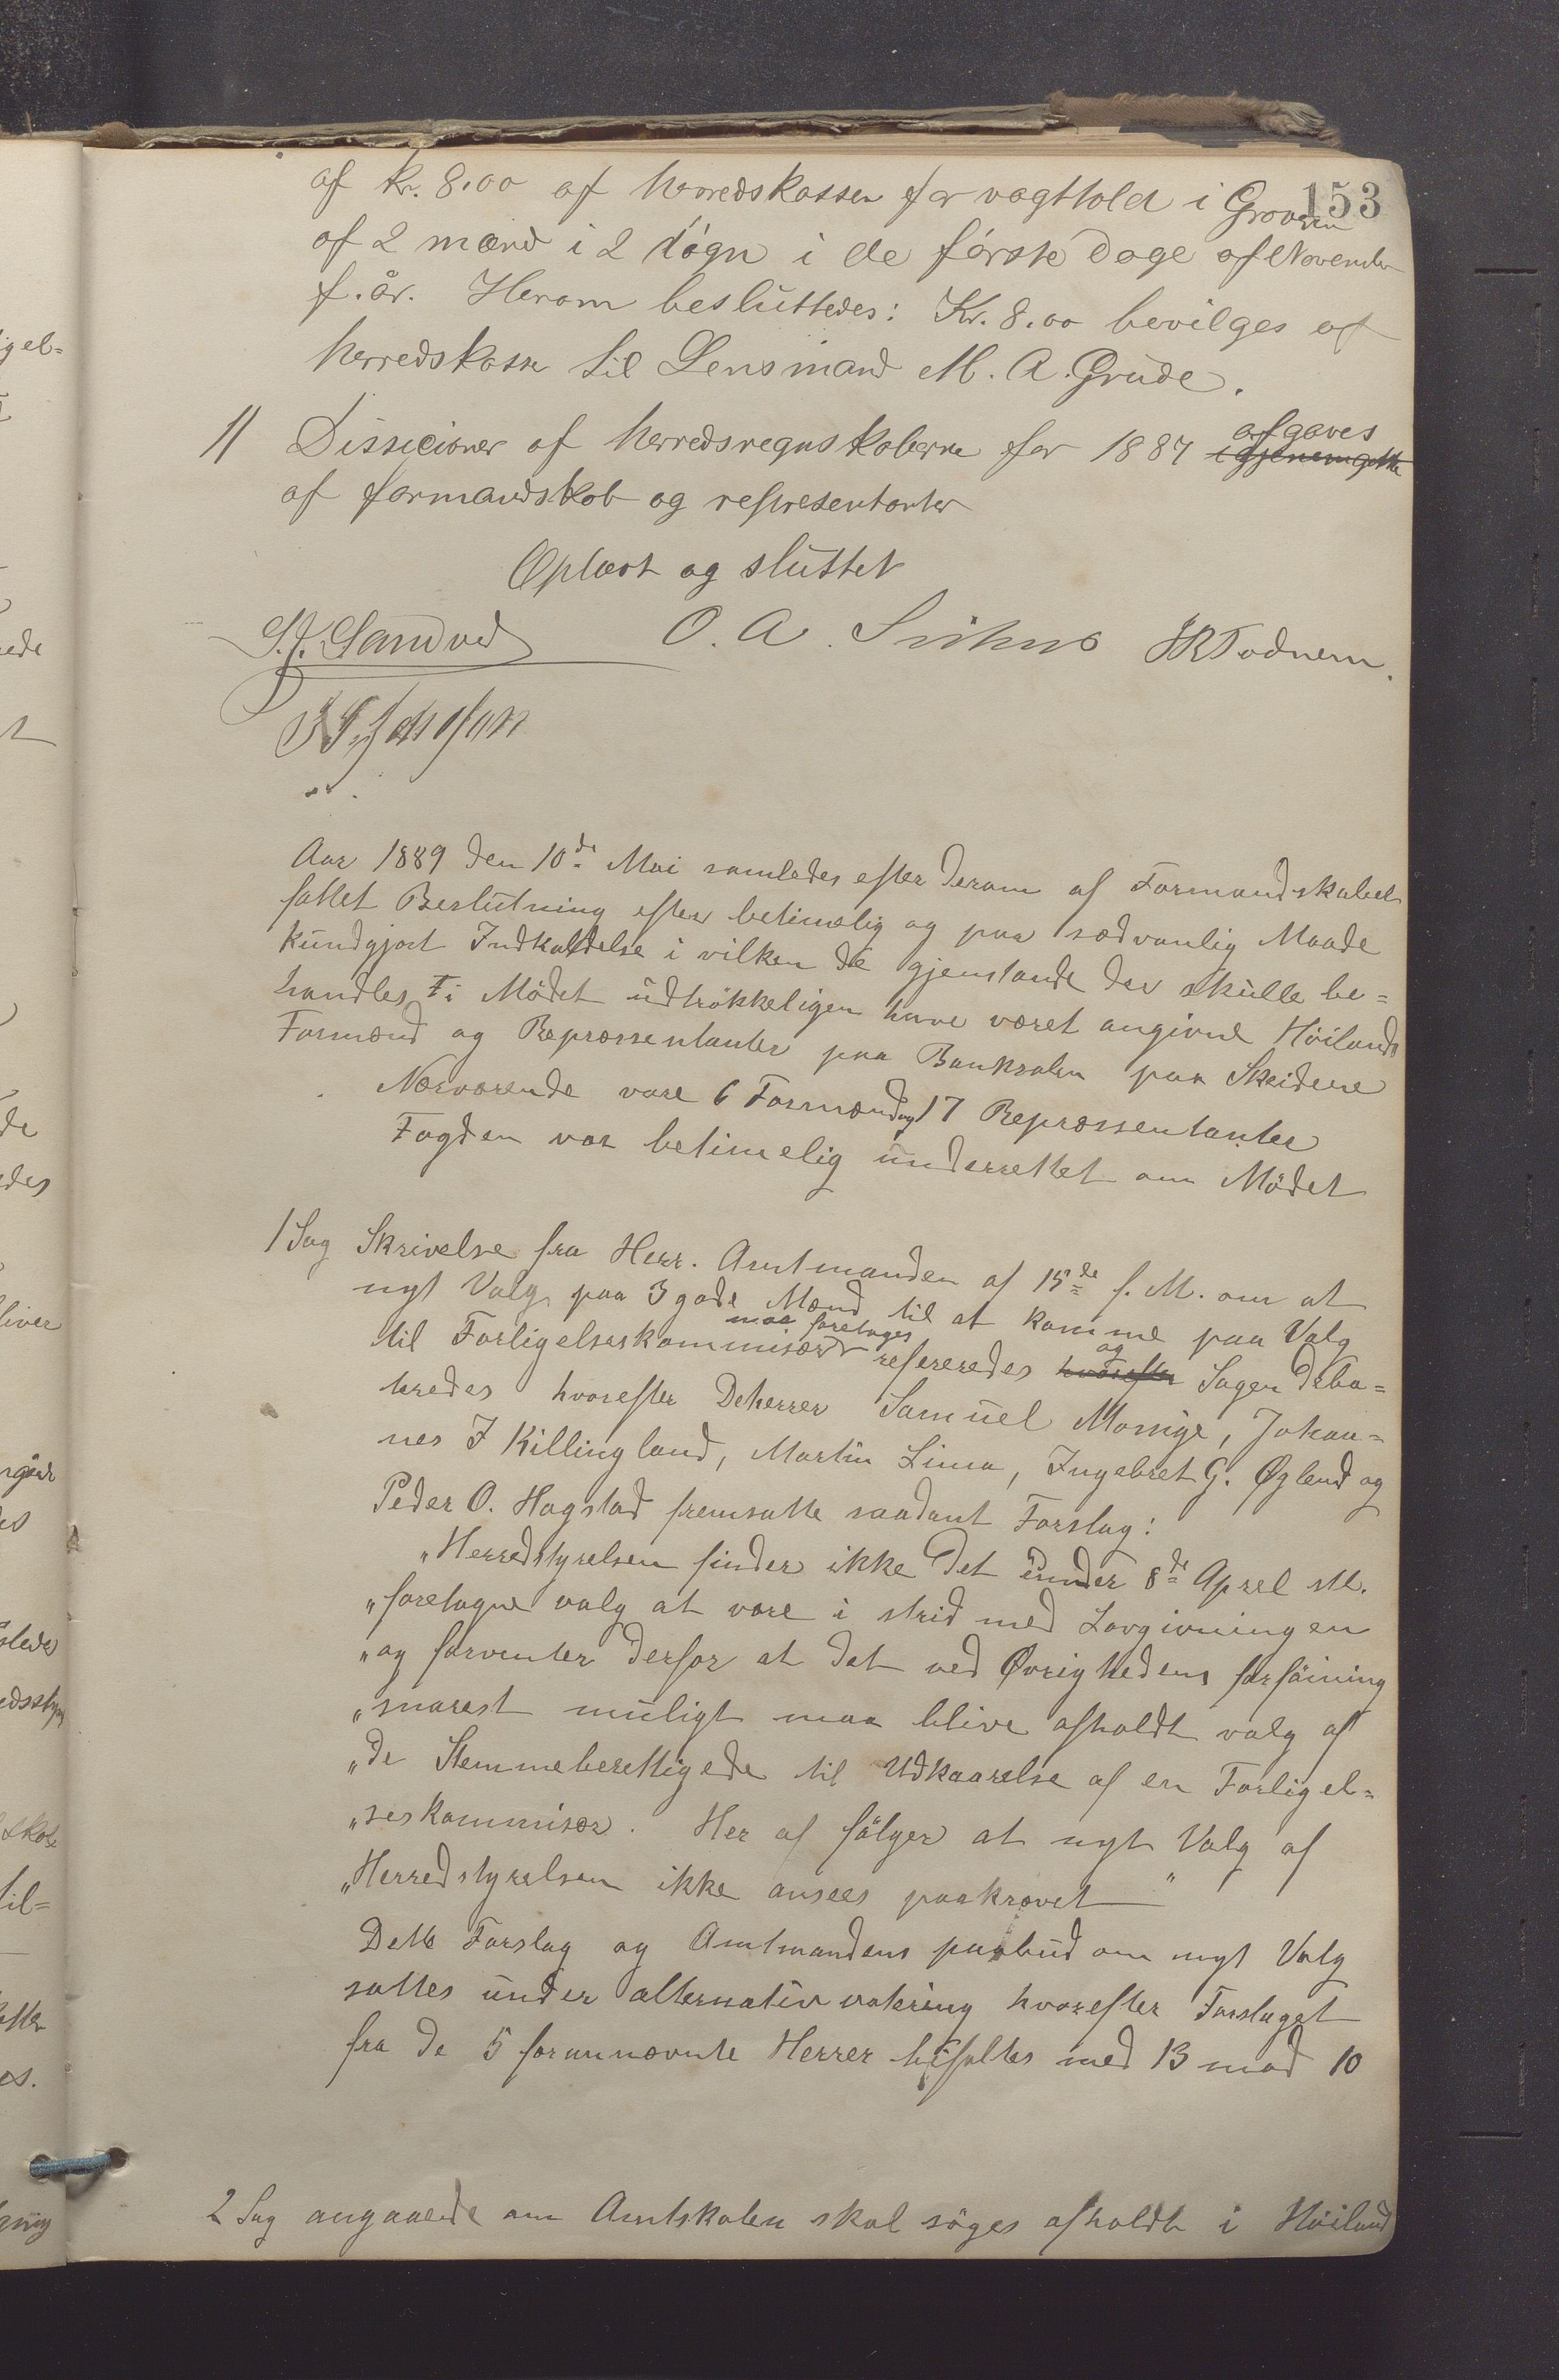 153
af kr. 8.00 af herredskassen for vagthold i Gravaren
af 2 mænd i 2 døgn i de første dage af November
f. år. Herom besluttedes: Kr. 8.00 bevilges af
herredskassen til Lensmand M. A. Grude.
11 Dissicioner af herredsregnskaberne for 1887 afgaves
af formandskab og representanter
Oplæst og sluttet
O. A. JRTodnem.
Aar 1889 den 10de Mai samledes efter derom af Formandskabet
fattet Beslutning efter betimelig og paa sædvanlig Maade
kundgjort Indkaldelse i vilken de gjenstande der skulle be=
handles i Mødet udtrøkkeligen have været angivne Høilands
Formænd og Repræssentanter paa Banksalen paa Skeidene
Nærværende vare 6 Formænd og 17 Repræssentanter
Fogden var betimelig underrettet om Mødet
1 Sag Skrivelse fra Herr. Amtmanden af 15de f. M. om at
nyt Valg paa 3 gode Mænd til at komme paa Valg
til Forligelseskommisær maa foretages refereredes hvorefter og Sagen deba=
teredes hvorefter Deherrer Samuel Monige, Johan=
nes J Killingland, Martin Lima, Ingebret G. Øglend og
Peder O. Hogstad fremsatte saadant Forslag:
"Herredstyrelsen finder ikke det under 8de Aprel
"foretagne valg at være i strid med Lovgivningen
"og forventer derfor at det ved Øvrighedens forføining
"snarest muligt maa blive afholdt valg af
"de Stemmeberettigede til Udkaarelse af en Forligel=
"seskommisær. Her af følger at nyt Valg af
"Herredstyrelsen ikke ansees paakrævet"
Dette Forslag og Amtmandens paabud om nyt Valg
sattes under alternativ votering hvorefter Forslaget
fra de 5 forannævnte Herrer bifaltes med 13 mod 10
2 Sag angaaende om Amtskolen skal søges afholdt i Høiland